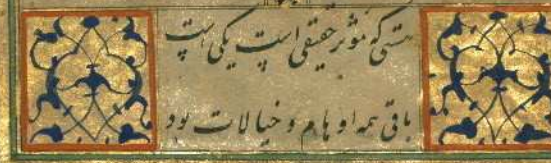 هستی که مؤثر حقیقی است یکی است
باقی همه اوهام و خیالات بود